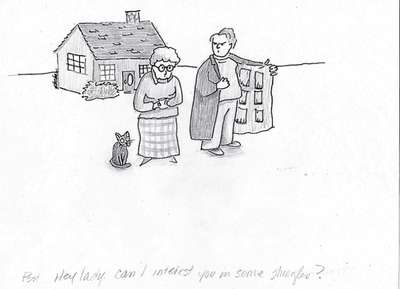 Psst Hey lady. Can I interest you in some shingles?